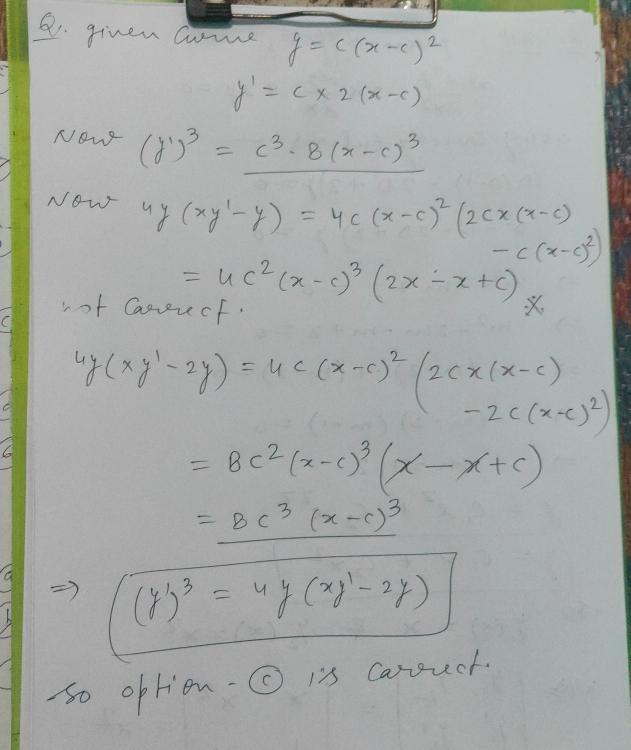 Q. given curve y = c(x-c)²
y' = c × 2(x-c)
Now (y')³ = c³·8(x-c)³
Now 4y(xy'-y) = 4c(x-c)²(2cx(x-c)
-c(x-c)²)
= 4c²(x-c)³(2x-x+c)
not correct.
4y(xy'-2y) = 4c(x-c)²(2cx(x-c)
-2c(x-c)²)
= 8c²(x-c)³(x-x+c)
= 8c³(x-c)³
⇒ (y')³ = 4y(xy'-2y)
so option-ⓒ is correct.